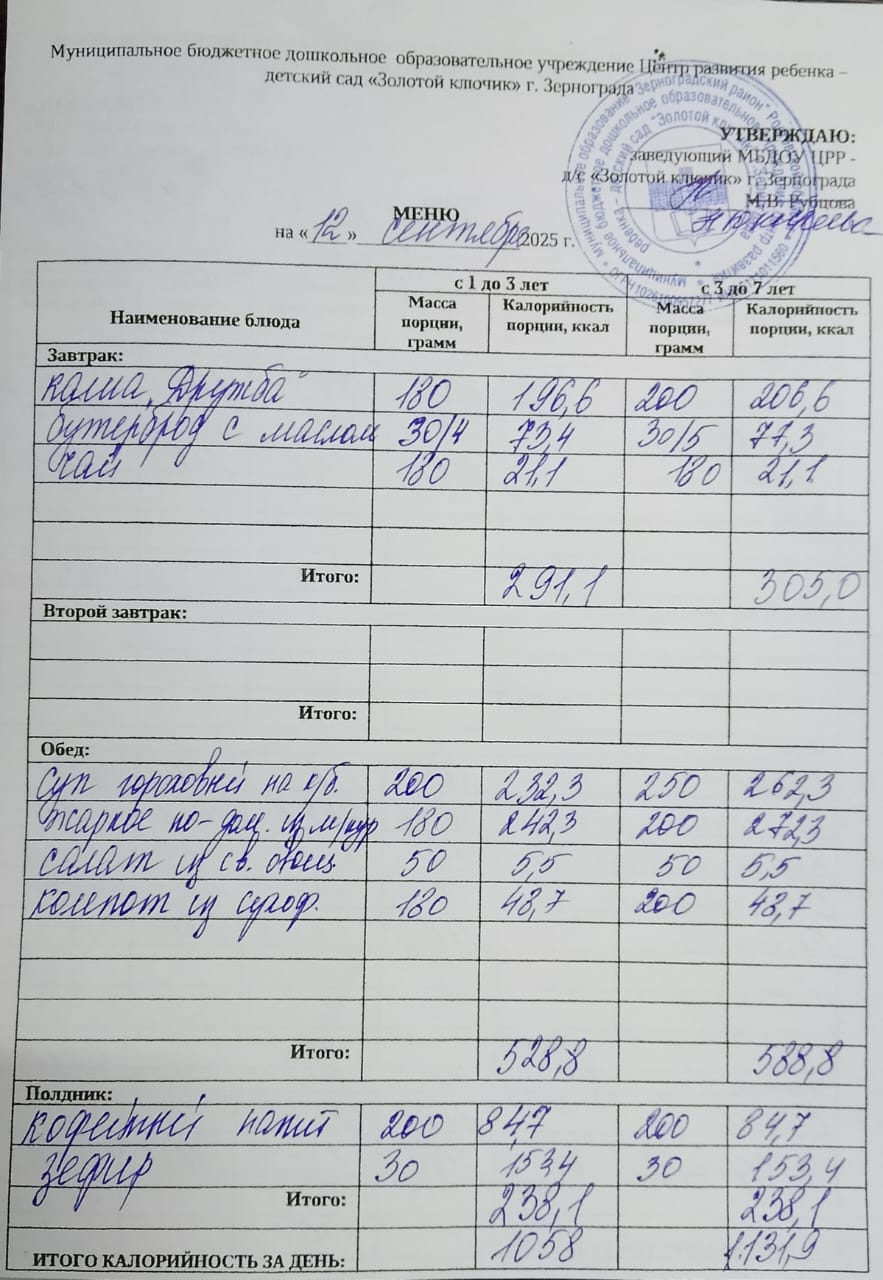 Муниципальное бюджетное дошкольное образовательное учреждение Центр развития ребенка –
детский сад «Золотой ключик» г. Зернограда
УТВЕРЖДАЮ:
заведующий МБДОУ ЦРР -
д/с «Золотой ключик» г. Зернограда
М.В. Рубцова
МЕНЮ
на « 12 » сентября 2025 г.
Наименование блюда с 1 до 3 лет с 3 до 7 лет
Масса порции, грамм Калорийность порции, ккал Масса порции, грамм Калорийность порции, ккал
Завтрак:
каша „Дружба" 180 196,6 200 206,6
бутерброд с маслом 30/4 73,4 30/5 77,3
чай 180 21,1 180 21,1
Итого: 291,1 305,0
Второй завтрак:
Итого:
Обед:
суп гороховый на к/б. 200 232,3 250 262,3
жаркое по-дом. из м/кур 180 242,3 200 272,3
салат из св. овощ. 50 5,5 50 5,5
компот из сухоф. 180 48,7 200 48,7
Итого: 528,8 588,8
Полдник:
кофейный напит 200 84,7 200 84,7
зефир 30 153,4 30 153,4
Итого: 238,1 238,1
ИТОГО КАЛОРИЙНОСТЬ ЗА ДЕНЬ: 1058 1131,9